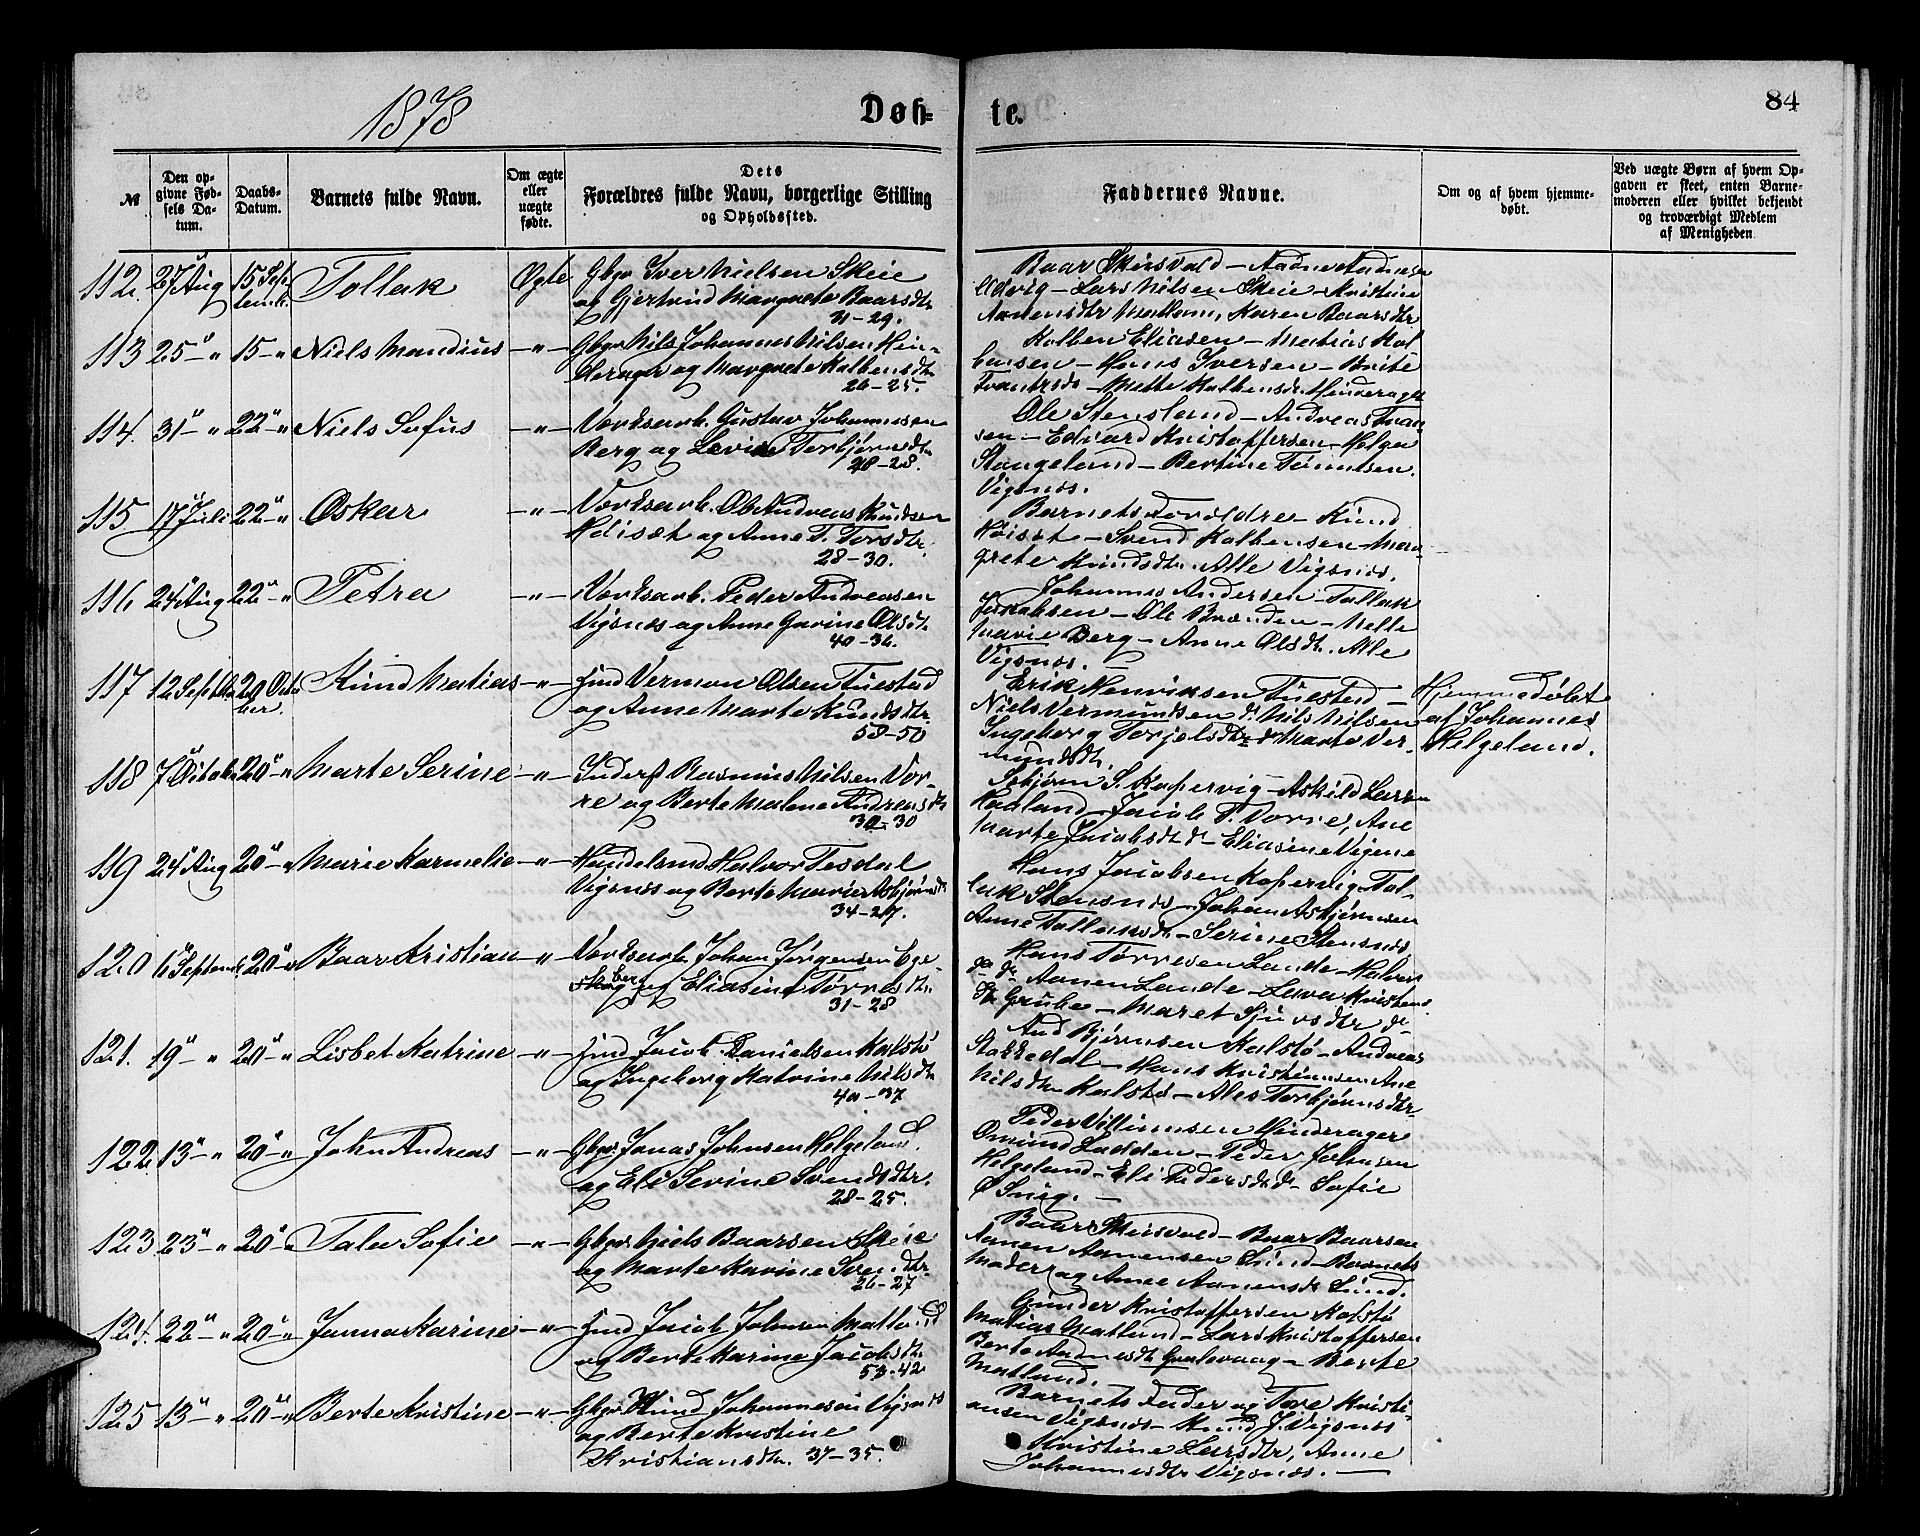 1878
Døb-
te.
84
№
Den op-
givne Fød-
sels Da-
tum.
Daabs-
Datum.
Barnets fulde Navn.
Om ægte
eller
uægte
fødte.
Dets
Forældres fulde Navn, borgerlige Stilling
og Opholdssted.
Faddernes Navne.
Om og af hvem hjemme-
døbt.
Ved uægte Børn af hvem Op-
gaven er skeet, enten Barne-
moderen eller hvilket bekjendt
og troværdigt Medlem
af Menigheden
112. 27 Aug 15 Sep-
temb. Tollak Ægte Gbgr Iver Nielsen Skeie
og Gjertrud Margrete Baarsdtr
31-29.
Baar Skeisvold - Aadne Aadnesen
Udvig - Lars Nilsen Skeie - Kristine
Aanensdtr Matland, Karen Baarsdtr
113 25 - " 15 - " Niels Mandius - " - Gbgr Nils Johannes Nilsen Hin-
derager og Margrete Kolbensdtr
26-25.
Kolben Eliasen - Matias Kol-
bensen - Hans Iversen - Brite
Frantzsd. - Mette Kolbensdr. Hinderager
114. 31 - " 22 - " Niels Sofus - " - Værksarb. Gustav Johannessen
Berg og Levine Torbjørnsdtr
28-28.
Ole Stensland - Andreas Tran-
sen - Edvard Kristoffersen - Helga
Stangeland - Bertine Tønnesen.
Vigsnes.
115 17 Juli 22 - " Oskar - " - Værksarb. Ole Andreas Knudsen
Høiset og Anne T. Torsdtr.
28-30.
Barnets Forældre - Knud
Høiset - Svend Kolbensen - Mar-
grete Knudsdtr. Alle Vigsnes.
116 24 Aug 22 - " Petra - " - Værksarb. Peder Andreasen
Vigsnes og Anne Gurine Olsdt.
40-36.
Johannes Andersen - Tollak
Jakobsen - Ole Brænden - Helle
Marie Berg - Anne Olsdtr. Alle
Vigsnes. -
117 12 Septbr 20 Octo-
ber. Knud Matias - " - Ind Vermon Olsen Tuestad
og Anne Marte Knudsdtr.
58-50
Erik Henriksen Tuestad -
Niels Vermundsen do Nils Nilsen
Ingeborg Torjelsdtr do Marte Ver-
mundsdtr.
Hjemmedøbt
af Johannes
Helgeland.
118 7 Octob. 20 - " Marte Serine - " - Inderst Rasmus Nilsen Vor-
re og Berte Malene Andreasdt
30-30
Isbjørn S. Kopervig - Askild Larsen
Hauland - Jacob T. Vorre, Ane
Marte Jacobsdt do Eliasine Vigene
119 24 Aug 20 - " Marie Karmelie - " - Handelsmd Halvor Tesdal
Vigsnes og Berte Marie Asbjørnsdt
34-27.
Hans Jacobsen Kopervig - Tol-
lak Stensnes - Johan Asbjørnsen
Anne Tollaksdt - Serine Stensnes
120 6 Septemb 20 - " Baar Kristian - " - Værksarb Johan Jørgensen Ege-
berg og Eliasine Torresdtr.
31-28
Hans Torresen Lande - Halvor
do do Aanen Lande - Lava Kristens
dt Grube - Maret Sjursdtr do
121. 19 " " 20 - " Lisbet Katrine - " - Ind Jacob Danielsen Kalstø
og Ingeborg Katrine Nilsdtr
40-37
And Bjørnsen Kalstø - Andreas
Stokkedal - Hans Kristensen Ane
Nilsdtr Kalstø - Ales Torbjørnsdtr.
122. 13 - " 20 - " John Andreas - " - Gbgr Jonas Johnsen Helgeland.
og Eli Sevine Svendsdtr.
28-25.
Peder Villumsen Hinderager
Omund Ladden - Peder Johnsen
Helgeland - Eli Pedersdt do Sofie
Ø Snig. -
123 23 - " 20 - " Talea Sofie - " - Gbgr Niels Baarsen Skeie
og Marte Karine Svensdtr.
26-27
Baar Skeisvold - Baar Baarsen
Aanen Aanensen Sund - Barnets
Moder og Anne Aanensdt Sund.
124. 22 - " 20 - " Janna Karine - " - Ind Jacob Johnsen Matland
og Berte Karine Jacobsdtr
53-42
Gunder Kristoffersen Kalstø
Matias Matland - Lars Kristoffersen
Berte Aadnesdtr Gunlevaag - Berte
Matland.
125 13 - " 20 - " Berte Kristine - " - Gbgr Knud Johannesen Vigsnes
og Berte Kristine
Kristiansdtr. 37-35.
Barnets Fader og Tore Kristi-
ansen Vigsnes - Knud J. Vigsnes
Kristine Larsdtr, Anne
Johannesdtr Vigsnes. -